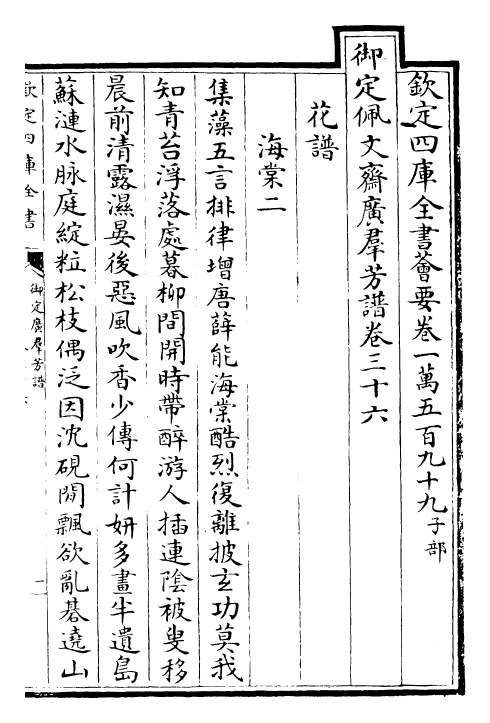 欽定四庫全書薈要卷一萬五百九十九子部
御定佩文齋廣羣芳譜卷三十六
花譜
海棠二
集藻五言排律增唐薛能海棠酷烈復離披玄功莫我
知青苔浮落處暮柳間開時帶醉游人插連陰被叟移
晨前清露濕晏後惡風吹香少傳何計妍多畫半遺島
蘇漣水脉庭綻粒松枝偶泛因沈硯閒飄欲亂碁遶山
欽定四庫全書
御定廣羣芳譜